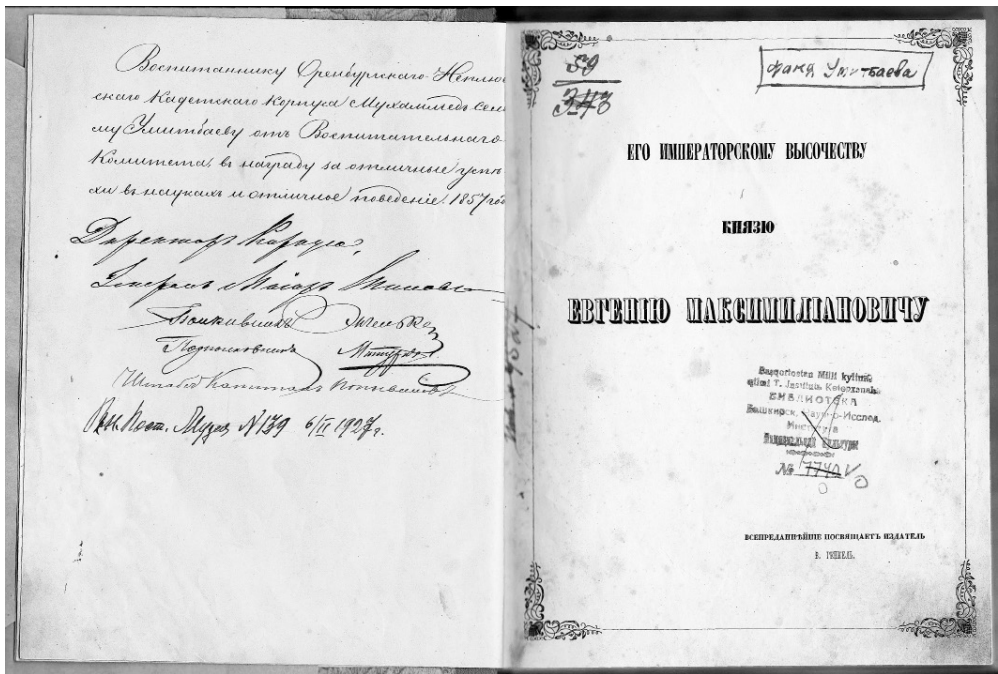 Воспитаннику Оренбургскаго Неплюев-
скаго Кадетскаго Корпуса Мухаммедъ Сели-
му Умитбаеву отъ Воспитательнаго
Комитета, въ награду за отличные успѣ-
хи въ наукахъ и отличное поведеніе. 1857 года
Директоръ Корпуса,
Генералъ Маіоръ
Полковникъ
Подполковникъ
Штабсъ Капитанъ
Вен. Пост. Музея N 139 6/II 1927 г.
59
343
фонд Умитбаева
ЕГО ИМПЕРАТОРСКОМУ ВЫСОЧЕСТВУ
КНЯЗЮ
ЕВГЕНІЮ МАКСИМИЛІАНОВИЧУ
Başqortostan Milli
БИБЛИОТЕКА
Башкирск. Научно-Исслед.
Института
Национальной Культуры
№ 7740
ВСЕПРЕДАННѢЙШЕ ПОСВЯЩАЕТЪ ИЗДАТЕЛЬ
В. ГЕНКЕЛЬ.